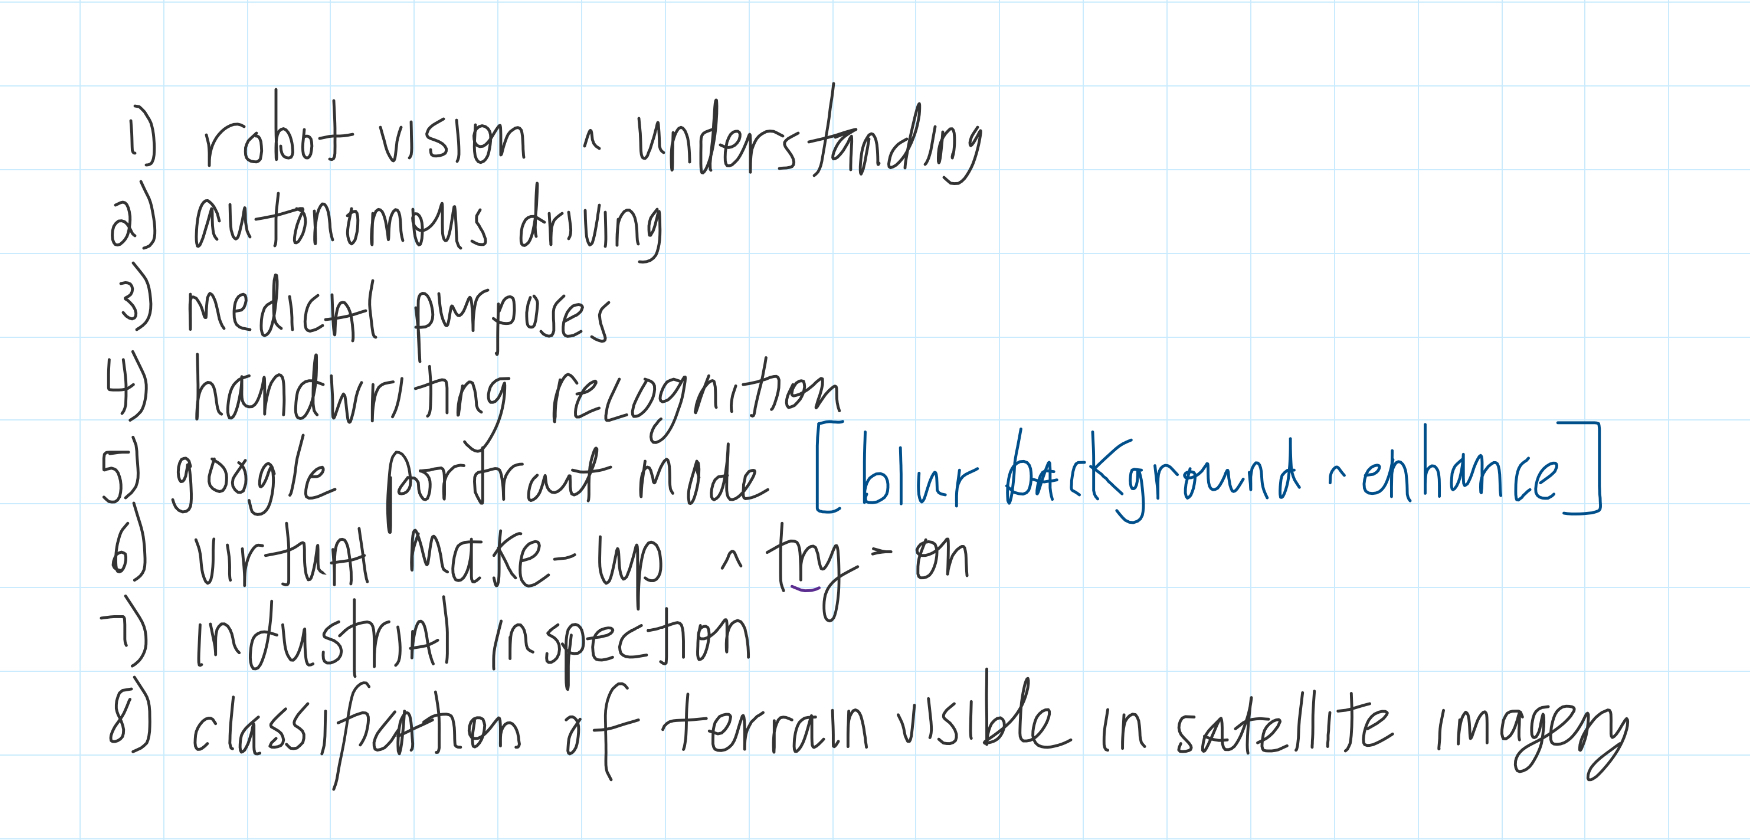 1) robot vision ^ understanding
2) autonomous driving
3) medical purposes
4) handwriting recognition
5) google portrait mode [blur background ^ enhance]
6) virtual make-up ^ try-on
7) industrial inspection
8) classification of terrain visible in satellite imagery